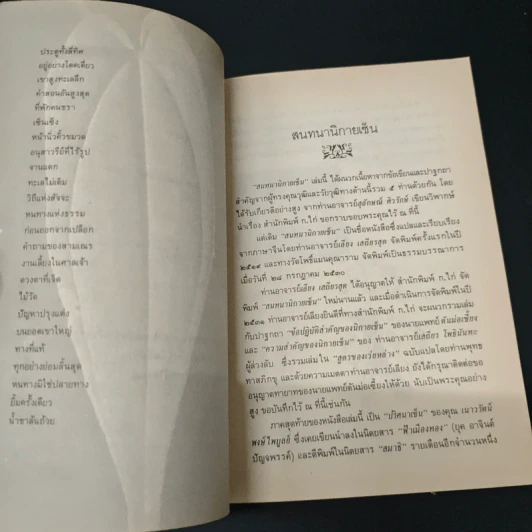 ประตูทั้งสี่ทิศ
อยู่อย่างโดดเดี่ยว
เขาสูงทะเลลึก
คำสอนอันสูงสุด
ที่พักคนชรา
เซ็นเซิง
หน้านิ่วคิ้วขมวด
อนุสาวรีย์ที่ไร้รูป
จานแตก
ทะเลไม่เต็ม
วิถีแห่งสัจจะ
หนทางแห่งธรรม
ก่อนออกจากเปลือก
คำถามของสามเณร
งานเลี้ยงในศาลเจ้า
ดวงตาที่เจ็ด
ไม้วัด
ปัญหาปรุงแต่ง
บนยอดเขาใหญ่
ทางที่แท้
ทุกอย่างย่อมสิ้นสุด
หนทางมิใช่ปลายทาง
ยิ้มครั้งเดียว
น้ำชาล้นถ้วย
สนทนานิกายเซ็น
"สนทนานิกายเซ็น" เล่มนี้ ได้ผนวกเนื้อหาจากข้อเขียนและปาฐกถา
สำคัญจากผู้ทรงคุณวุฒิและวัยวุฒิทางด้านนี้รวม ๕ ท่านด้วยกัน โดย
ได้รับเกียรติอย่างสูง จากท่านอาจารย์สุลักษณ์ ศิวรักษ์ เขียนวิพากษ์
นำเรื่อง สำนักพิมพ์ ก.ไก่ ขอกราบขอบพระคุณไว้ ณ ที่นี้
แต่เดิม "สนทนานิกายเซ็น" เป็นชื่อหนังสือซึ่งแปลและเรียบเรียง
จากภาษาจีนโดยท่านอาจารย์เสถียร จัดพิมพ์ครั้งแรกในปี
และทางวัดโพธิ์แมนคุณาราม จัดพิมพ์เป็นธรรมบรรณาการ
เมื่อวันที่ ๒๘ กรกฎาคม ๒๕๓๐
ท่านอาจารย์ ได้อนุญาตให้ สำนักพิมพ์ ก.ไก่ จัด
พิมพ์ "สนทนานิกายเซ็น" ใหม่นานแล้ว และเมื่อดำเนินการจัดพิมพ์ในปี
๒๕๓๑ ท่านอาจารย์เลียงยินดีที่ทางสำนักพิมพ์ ก.ไก่ จะผนวกรวมเล่ม
กับปาฐกถา "ข้อปฏิบัติสำคัญของนิกายเซ็น" ของนายแพทย์ตันม่อเซี้ยง
และ "ความสำคัญของนิกายเซ็น" ของ ท่านอาจารย์เสถียร โพธินันทะ
ผู้ล่วงลับ ซึ่งรวมเล่มใน "สูตรของเว่ยหล่าง" ฉบับแปลโดยท่านพุทธ
ทาสภิกขุ และด้วยความเมตตาท่านอาจารย์เลียง ยังได้กรุณาติดต่อขอ
อนุญาตทายาทของนายแพทย์ตันม่อเซี้ยงให้ด้วย นับเป็นพระคุณอย่าง
สูง ขอบันทึกไว้ ณ ที่นี้เช่นกัน
ภาคสุดท้ายของหนังสือเล่มนี้ เป็น "ปริศนาเซ็น" ของคุณ เนาวรัตน์
พงษ์ไพบูลย์ ซึ่งเคยเขียนนำลงในนิตยสาร "ฟ้าเมืองทอง" (ยุค อาจินต์
ปัญจพรรค์) และตีพิมพ์ในนิตยสาร "สมาธิ" รายเดือนอีกจำนวนหนึ่ง